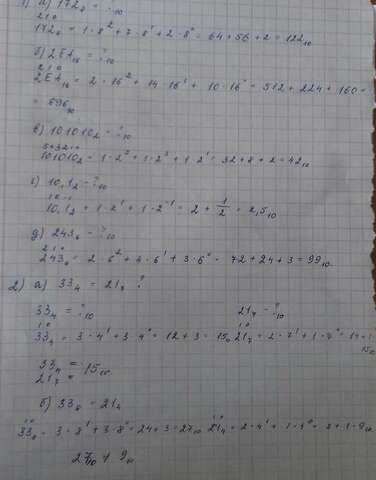 1) а) 172₈ = ?₁₀
2 1 0
172₈ = 1·8² + 7·8¹ + 2·8⁰ = 64 + 56 + 2 = 122₁₀
б) 2EA₁₆ = ?₁₀
2 1 0
2EA₁₆ = 2·16² + 14·16¹ + 10·16⁰ = 512 + 224 + 160 =
= 696₁₀
в) 101010₂ = ?₁₀
5 4 3 2 1 0
101010₂ = 1·2⁵ + 1·2³ + 1·2¹ = 32 + 8 + 2 = 42₁₀
г) 10,1₂ = ?₁₀
1 0 -1
10,1₂ = 1·2¹ + 1·2⁻¹ = 2 + 1/2 = 2,5₁₀
д) 243₆ = ?₁₀
2 1 0
243₆ = 2·6² + 4·6¹ + 3·6⁰ = 72 + 24 + 3 = 99₁₀
2) а) 33₄ = 21₇ ?
33₄ = ?₁₀ 21₇ = ?₁₀
1 0 1 0
33₄ = 3·4¹ + 3·4⁰ = 12 + 3 = 15₁₀ 21₇ = 2·7¹ + 1·7⁰ = 14 + 1
15₁₀
33₄ = 15₁₀
21₇ =
б) 33₈ = 21₄
1 0 1 0
33₈ = 3·8¹ + 3·8⁰ = 24 + 3 = 27₁₀ 21₄ = 2·4¹ + 1·4⁰ = 8 + 1 = 9₁₀
27₁₀ ≠ 9₁₀